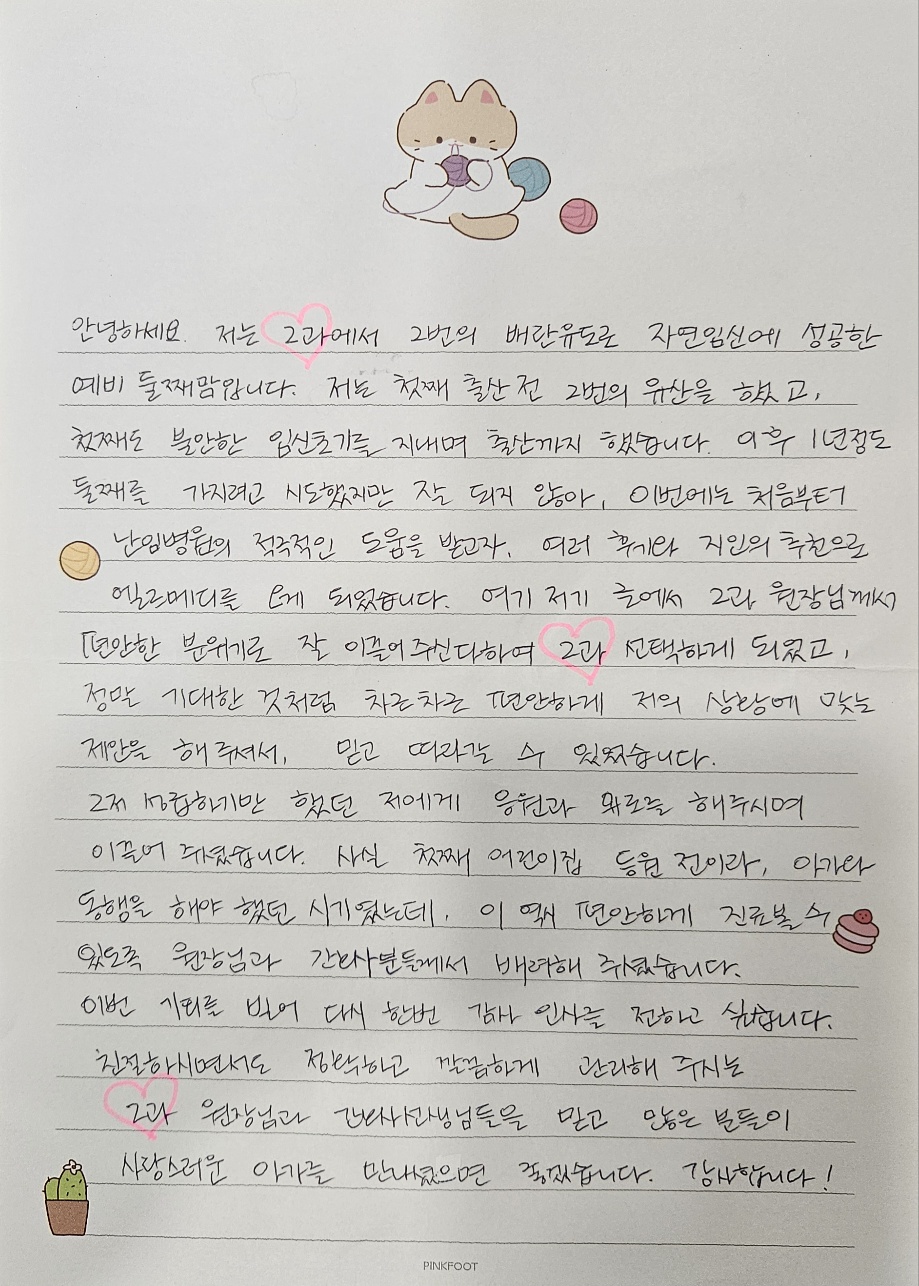 안녕하세요. 저는 2과에서 2번의 배란유도로 자연임신에 성공한
예비 둘째맘입니다. 저는 첫째 출산 전 2번의 유산을 했고,
첫째도 불안한 임신초기를 지내며 출산까지 했습니다. 이후 1년정도
둘째를 가지려고 시도했지만 잘 되지 않아, 이번에는 처음부터
난임병원의 적극적인 도움을 받고자, 여러 후기와 지인의 추천으로
엘르메디를 오게 되었습니다. 여기 저기 글에서 2과 원장님께서
편안한 분위기로 잘 이끌어 주신다하여 2과 선택하게 되었고,
정말 기대한 것처럼 차근차근 편안하게 저의 상황에 맞는
제안을 해 주셔서, 믿고 따라갈 수 있었습니다.
그저 성급하기만 했던 저에게 응원과 위로를 해주시며
이끌어 주셨습니다. 사실 첫째 어린이집 등원 전이라, 아가와
동행을 해야 했던 시기였는데, 이 역시 편안하게 진료볼 수
있도록 원장님과 간호사분들께서 배려해 주셨습니다.
이번 기회를 빌어 다시 한번 감사 인사를 전하고 싶습니다.
친절하시면서도 정확하고 깔끔하게 관리해 주시는
2과 원장님과 간호사선생님들을 믿고 많은 분들이
사랑스러운 아가를 만나셨으면 좋겠습니다. 감사합니다!
PINKFOOT